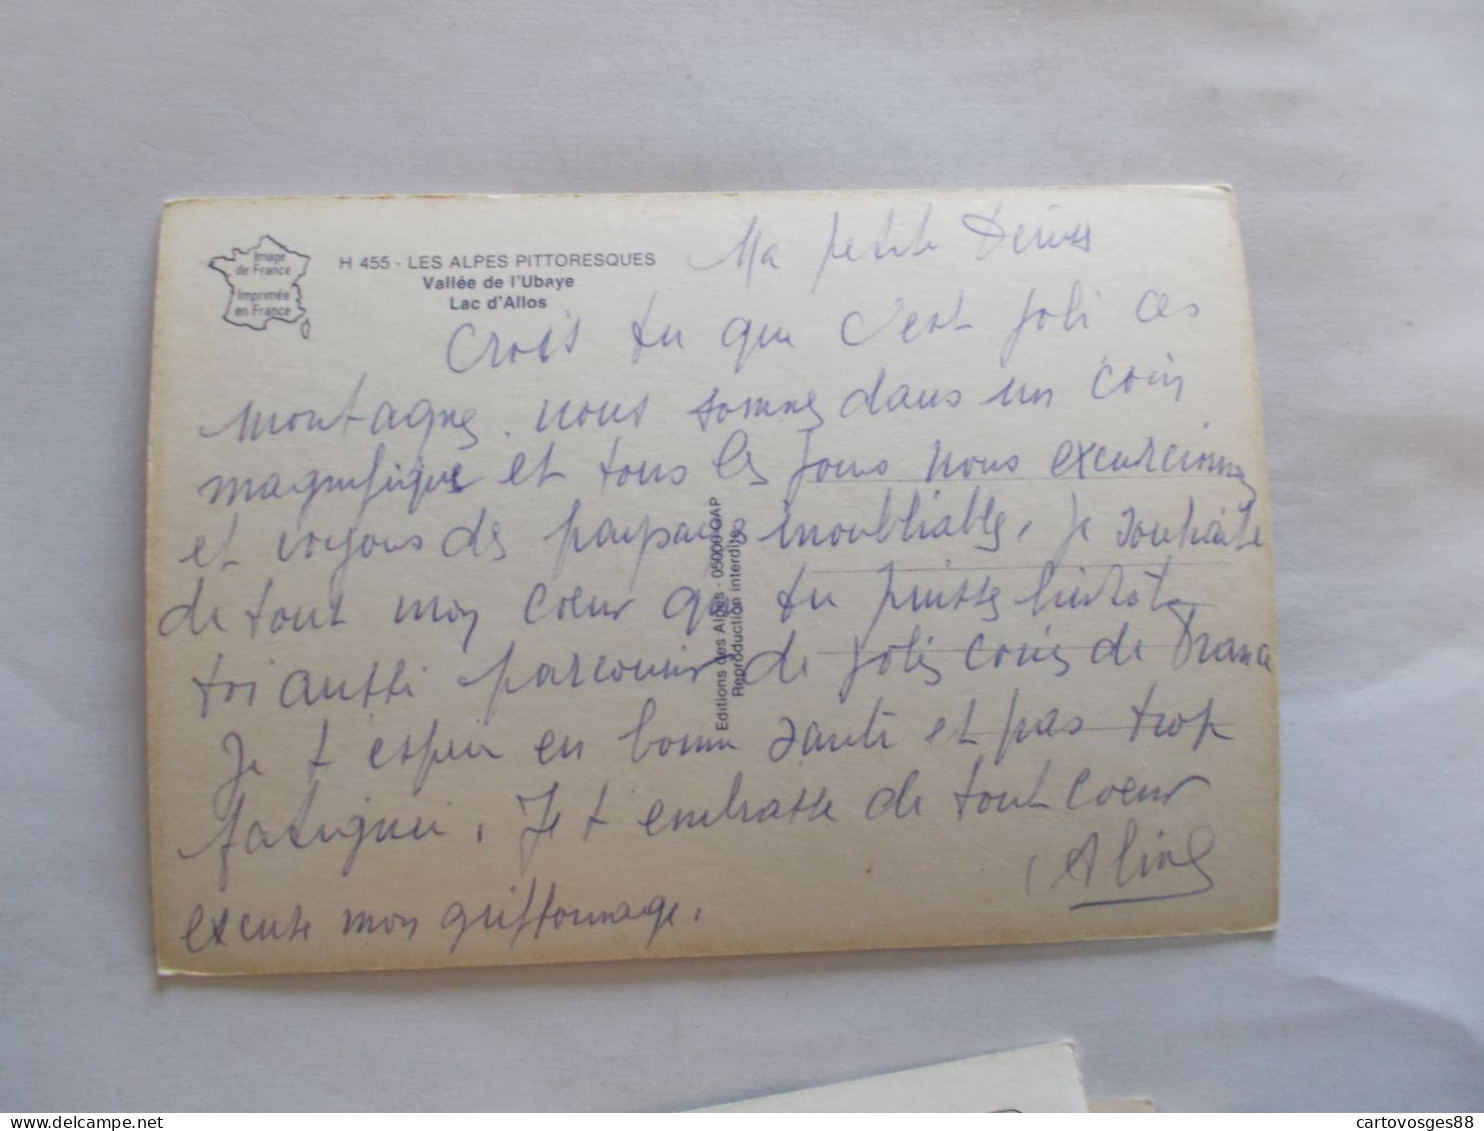 Image
de France
Imprimée
en France
H 455 - LES ALPES PITTORESQUES
Vallée de l'Ubaye
Lac d'Allos
Ma petite
Crois tu que c'est joli ces
montagnes. nous sommes dans un coin
magnifique et tous les jours nous excursionnons
et voyons des paysages inoubliables, je souhaite
de tout mon coeur que tu puisses bientôt
toi aussi parcourir de jolis coins de France
Je t'espère en bonne santé et pas trop
fatiguée. Je t'embrasse de tout coeur
Aline
excuse mon griffonnage.
Editions des Alpes - 05000 GAP
Reproduction interdite
cartovosges88